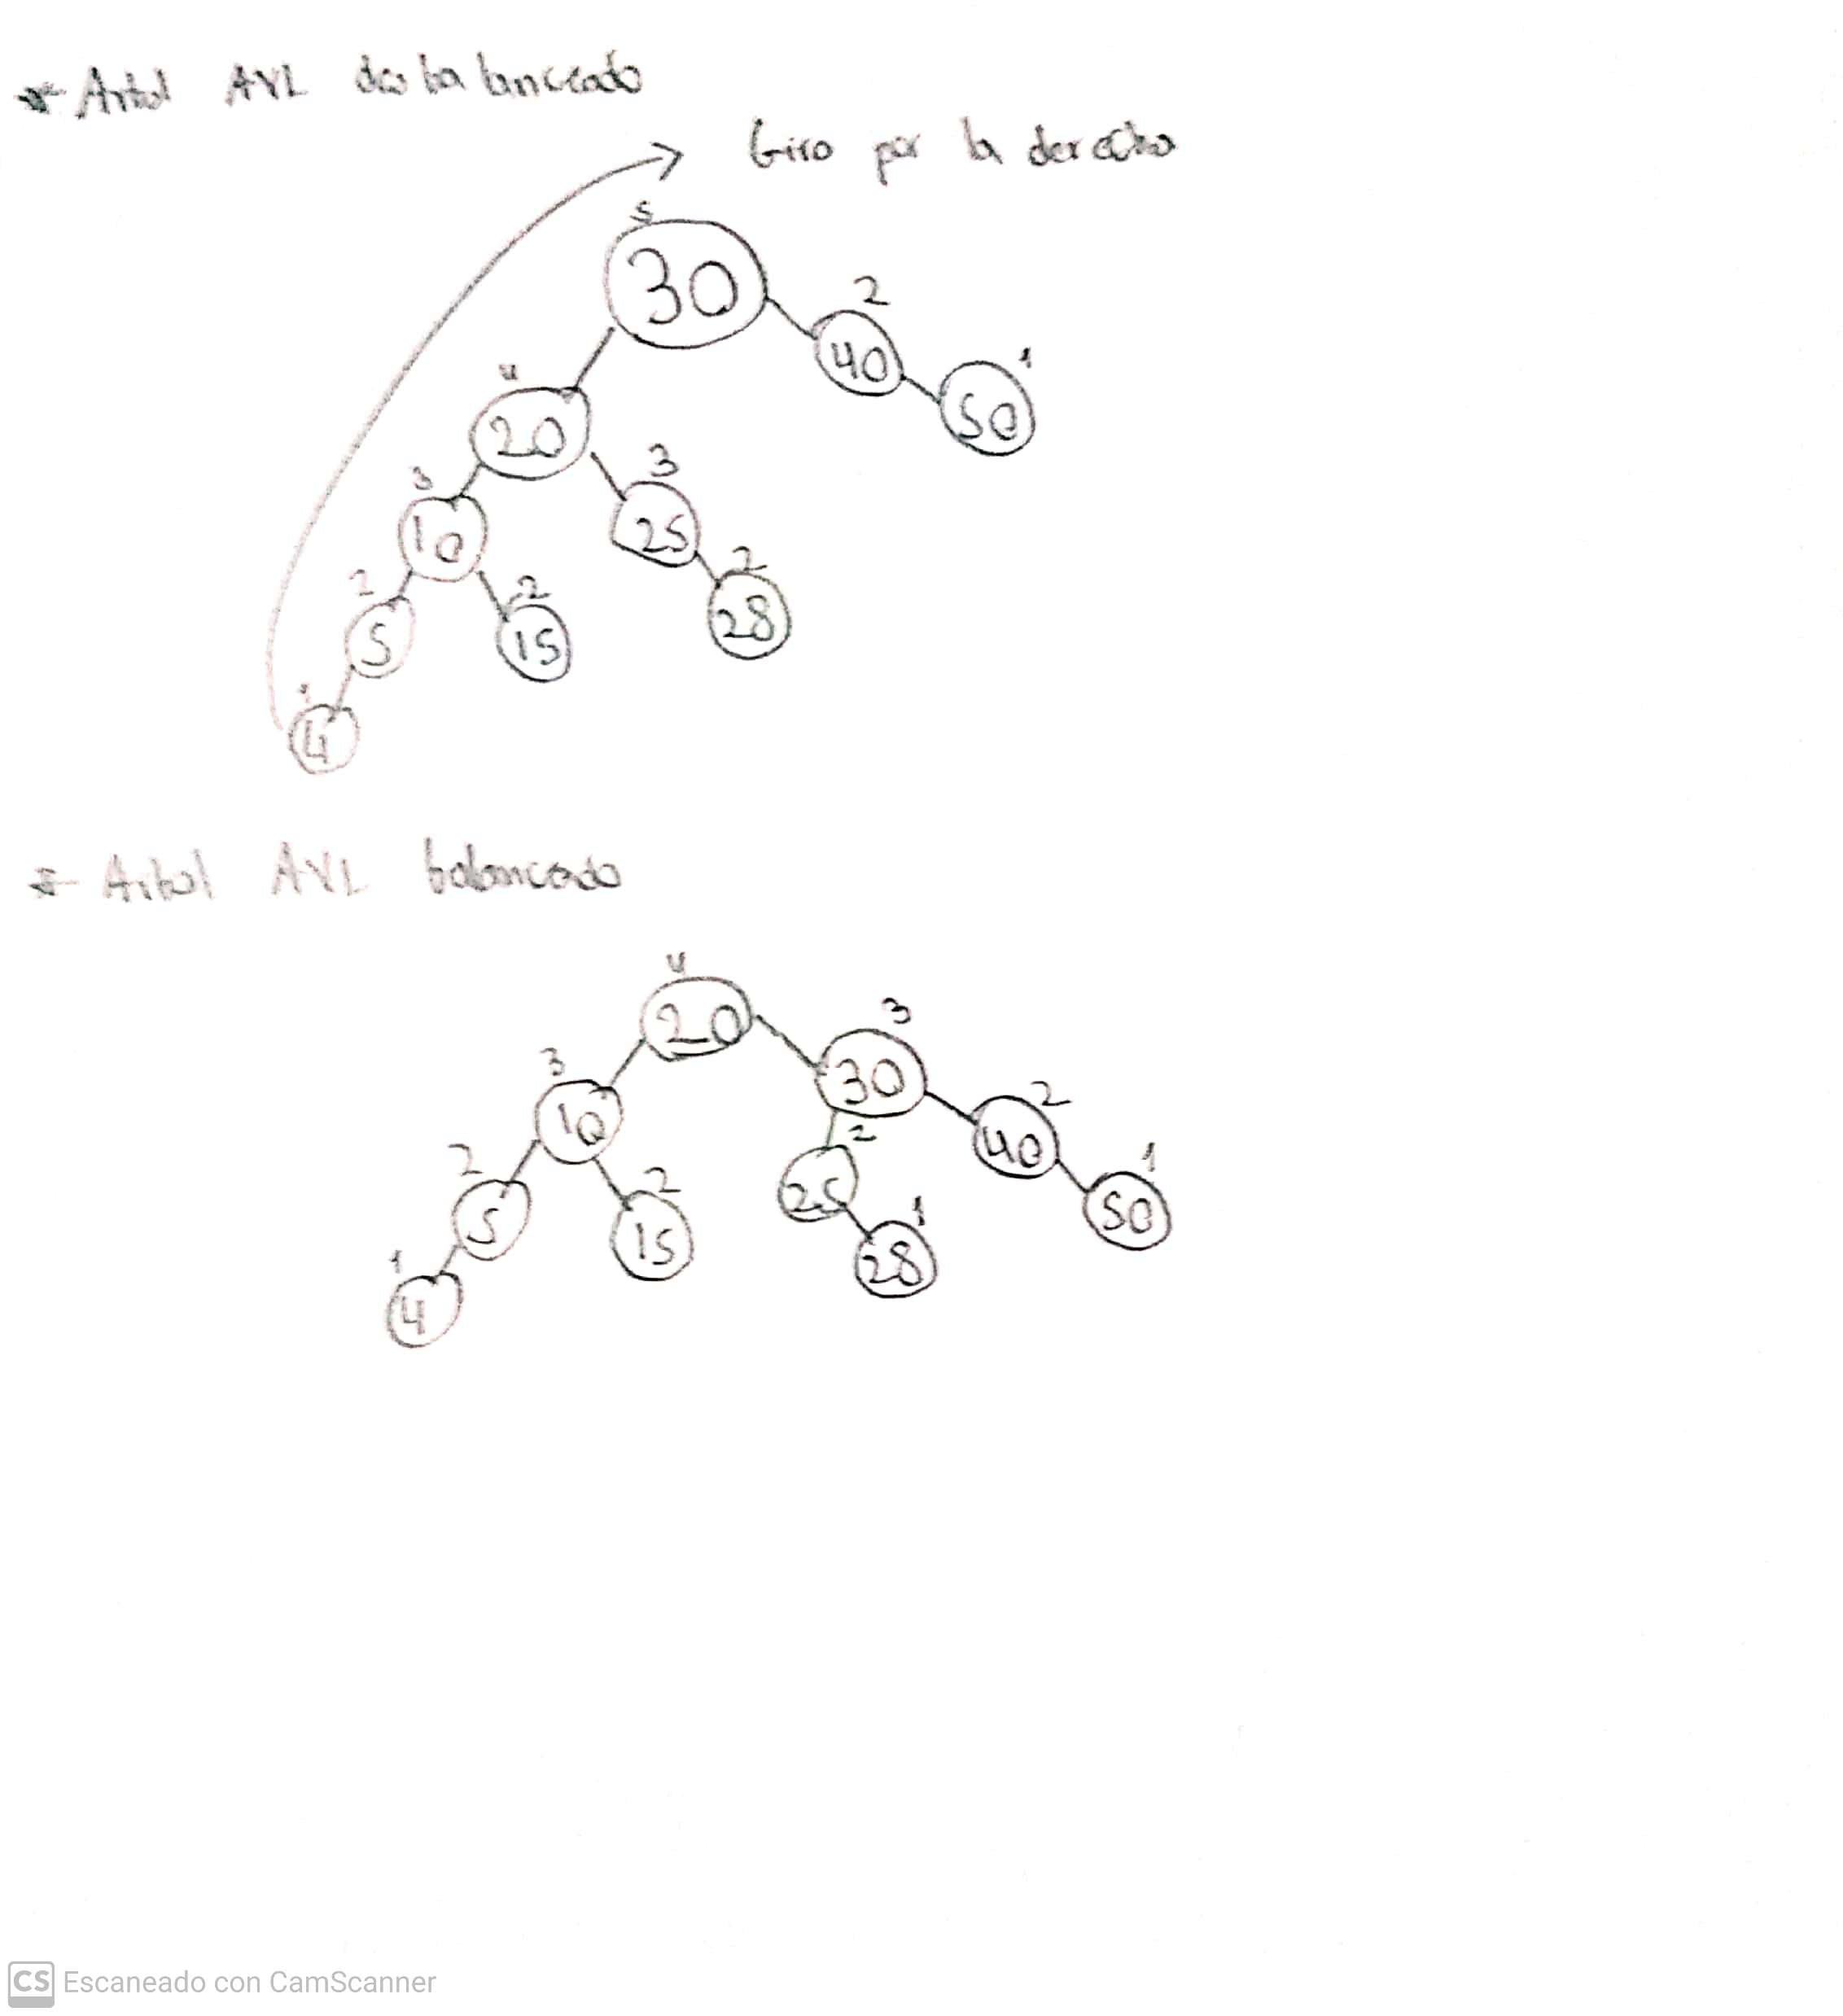 * Arbol AVL desbalanceado
Giro por la derecha
5
30
2
40
1
50
4
20
3
10
3
25
2
5
2
15
2
28
1
4
* Arbol AVL balanceado
4
20
3
30
3
10
2
40
2
25
1
50
2
5
2
15
1
28
1
4
CS Escaneado con CamScanner